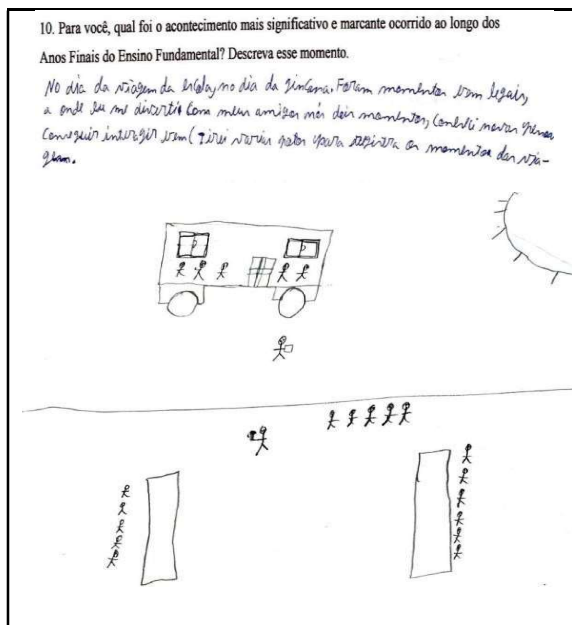 10. Para você, qual foi o acontecimento mais significativo e marcante ocorrido ao longo dos
Anos Finais do Ensino Fundamental? Descreva esse momento.
No dia da viagem da escola, no dia da gincana. Foram momentos bem legais,
a onde eu me divertir com meus amigos nós dois momentos, conheci novas
Conseguir interagir bem (Tirei varias para registra os momentos das via-
gem.